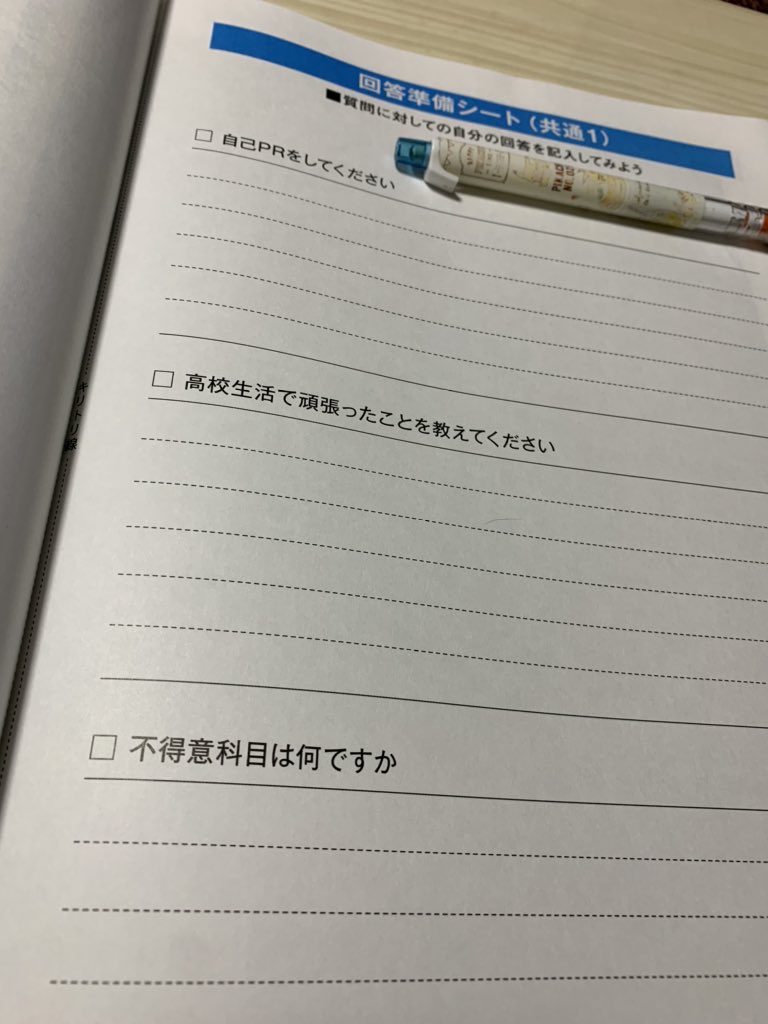 回答準備シート(共通1)
■質問に対しての自分の回答を記入してみよう
□ 自己PRをしてください
□ 高校生活で頑張ったことを教えてください
キリトリ線
□ 不得意科目は何ですか